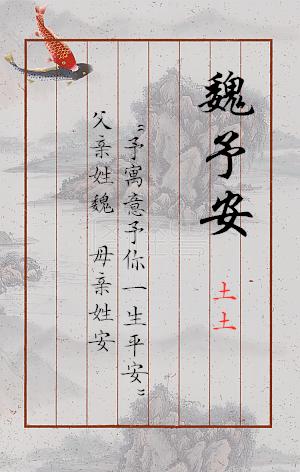 魏予安
土土
“予寓意予你一生平安”
父亲姓魏 母亲姓安